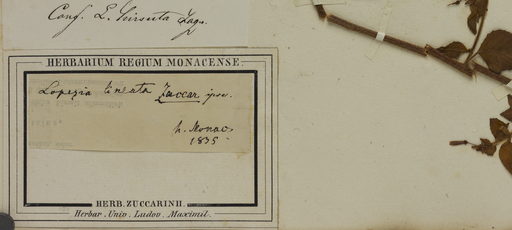 Conf. L. hirsuta Jacq.
HERBARIUM REGIUM MONACENSE.
Lopezia lineata Zuccar ipse.
h. Monac.
1835
HERB. ZUCCARINII.
Herbar. Univ. Ludov. Maximil.